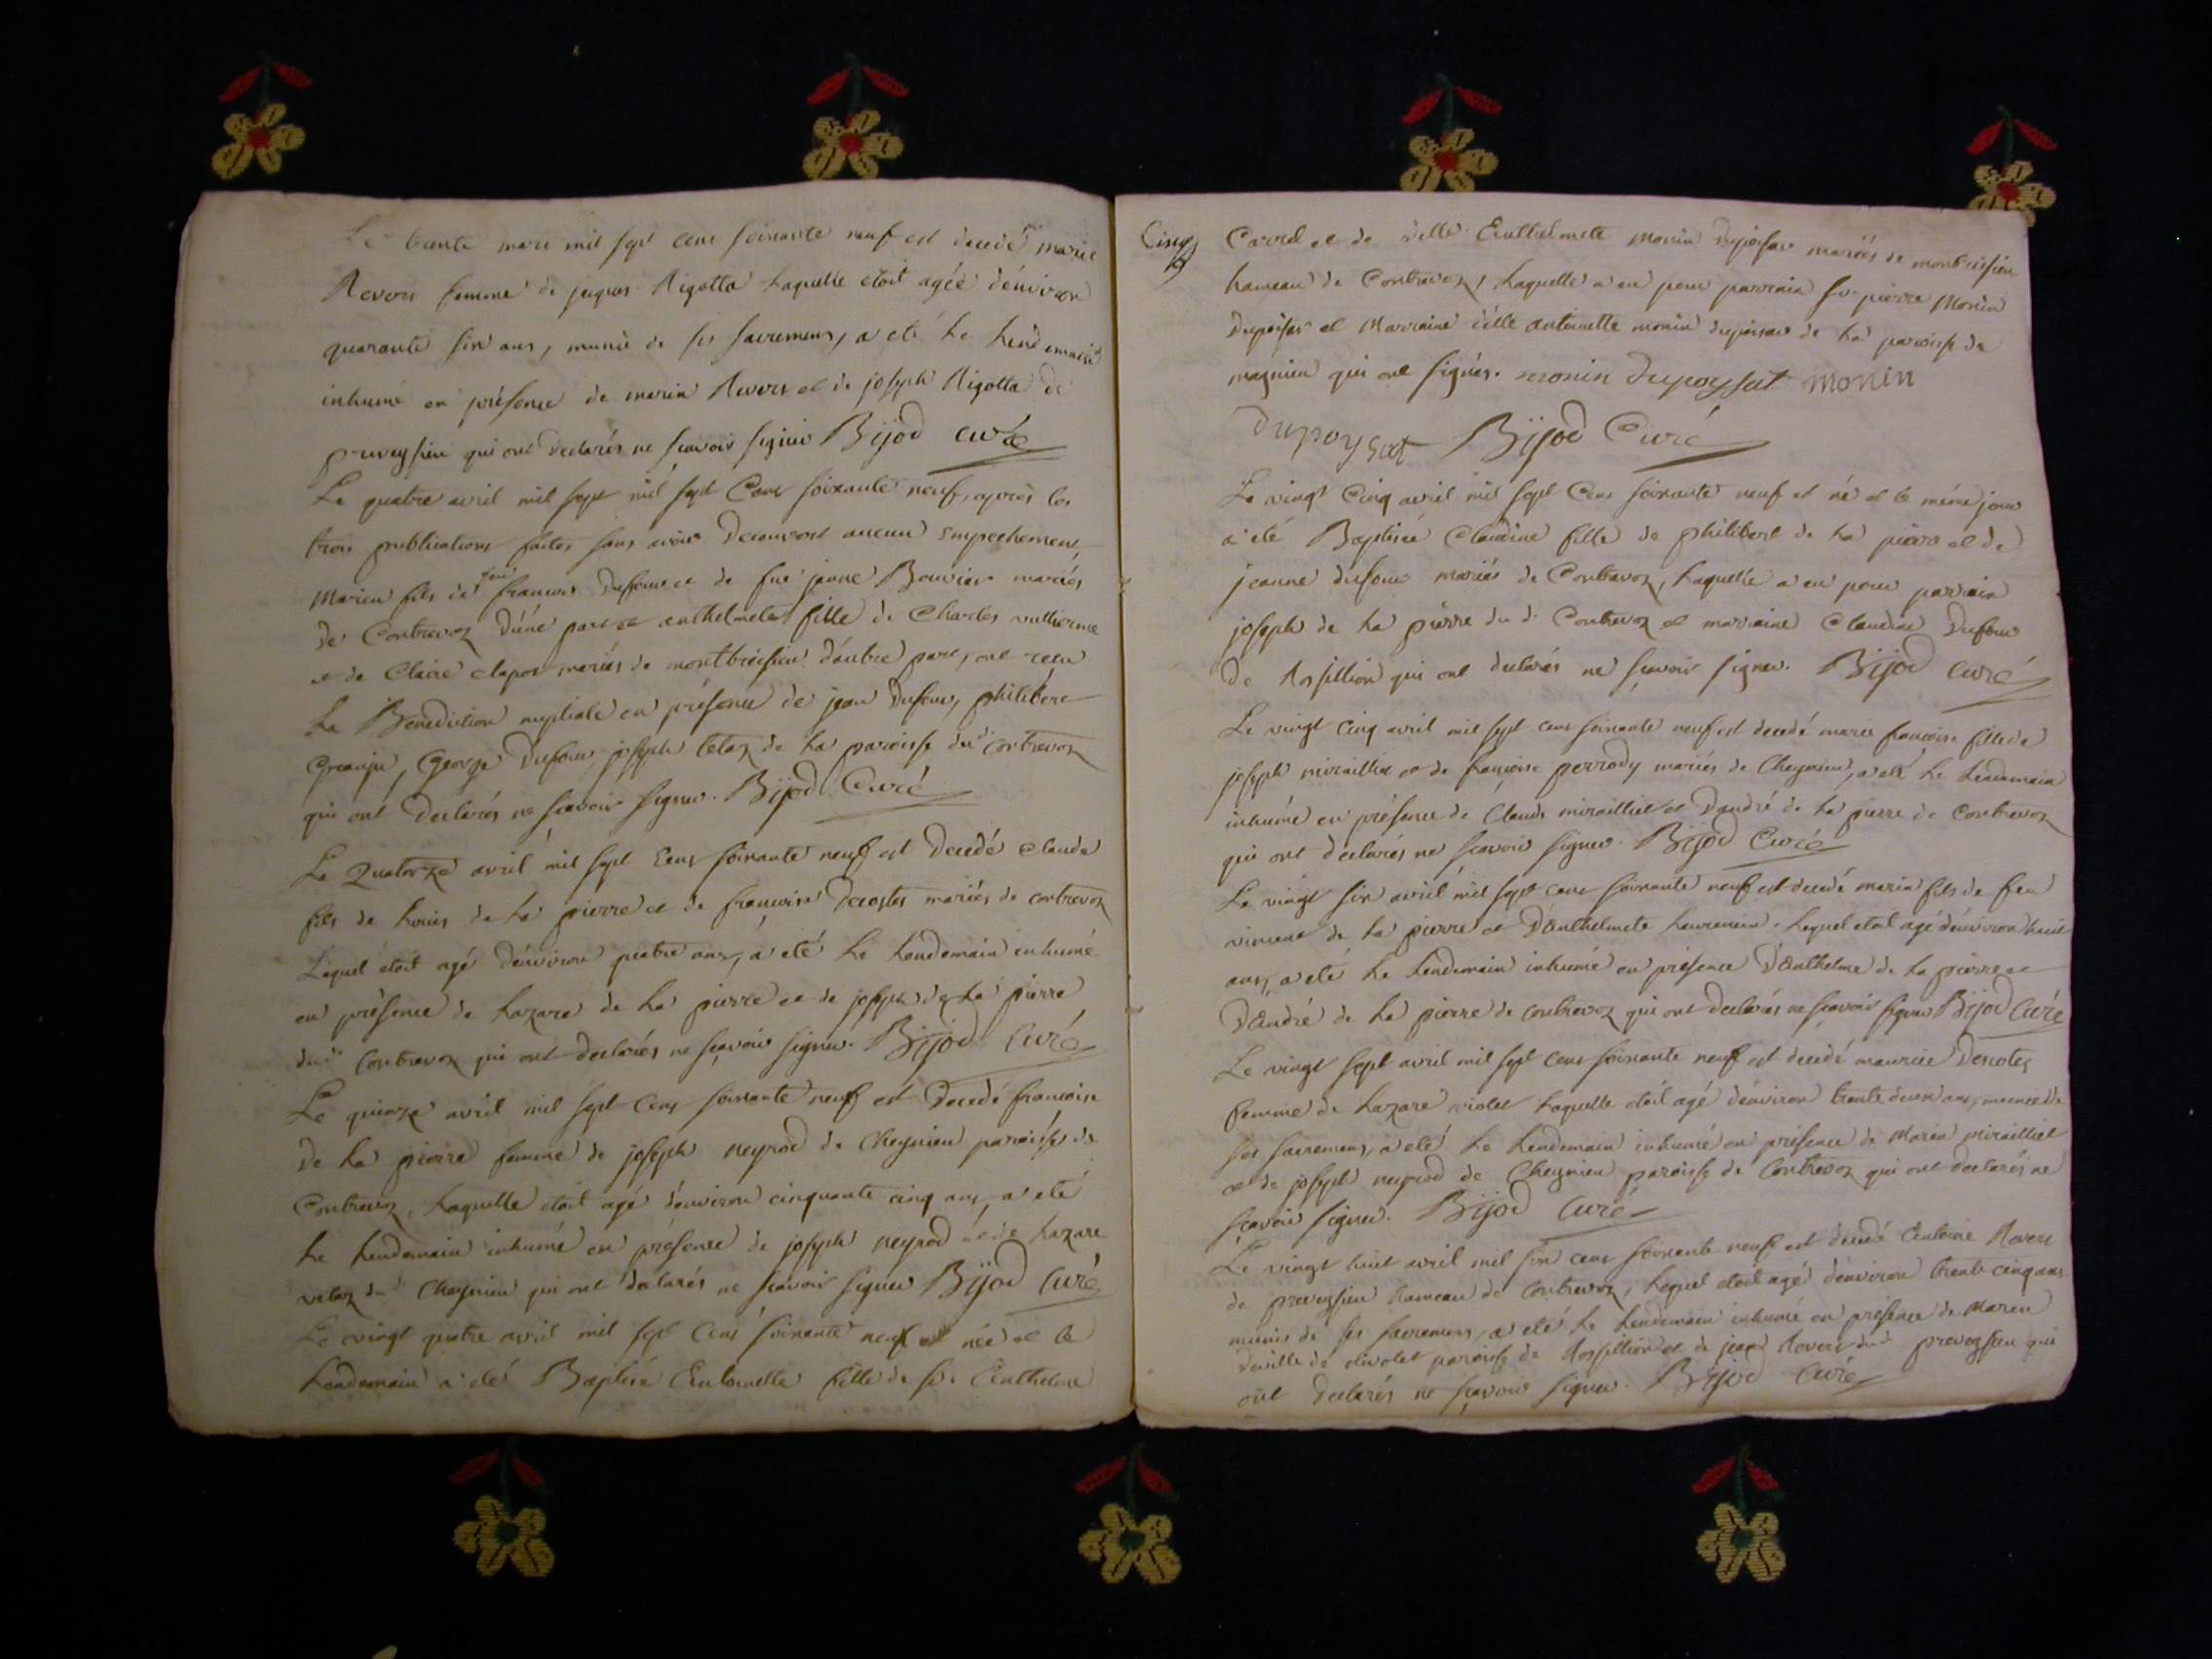 Le trente mars mil sept cens soixante neuf est decedé marie
Revers femme de jaques Rigotta laquelle etoit agée d'environ
quarante six ans, munie de ses sacremens, a eté le lendemain
inhumé en présence de marin Revers et de joseph Rigotta de
preveyssieu qui ont declarés ne scavoir signer Bijod curé
Le quatre avril mil sept mil sept Cens soixante neuf, après les
trois publications faites sans avoir decouvert aucun empechement
Marieu fils de feu francois Dufour et de fue jeanne Bouvier mariés
de Contrevoz d'une part et anthelmete fille de Charles vullierme
et de Claire clapot mariés de montbreisieu d'autre part, ont recu
la Benediction nuptiale en présence de jean Dufour, philibere
Greanju, George Dufour joseph tetaz de la paroisse dud contrevoz
qui ont declarés ne scavoir signer. Bijod Curé
Le Quatorze avril mil sept Cens soixante neuf est decedé claude
fils de louis de la pierre et de francoise Decostes mariés de contrevoz
Lequel étoit agé d'environ quatre ans, a eté le lendemain inhumé
en présence de lazare de la pierre et de joseph de la pierre
dud Contrevoz qui ont declarés ne sçavoir signer. Bijod Curé
Le quinze avril mil sept Cens soixante neuf est decedé francoise
De la pierre femme de joseph neyrod de Cheynieu paroisse de
Contrevoz, laquelle etoit agé d'environ cinquante cinq ans, a eté
le lendemain inhumé en présence de joseph neyrod et de lazare
vetaz dud Cheynieu qui ont declarés ne scavoir signer Bijod Curé
Le vingt quatre avril mil sept Cens soixante neuf est née et le
lendemain a eté Baptisé Antoinette fille de sr. Anthelme
Cinq
Carrel et de delle. Anthelmete Monin dupoisat mariés de montbreisieu
hameau de Contrevoz, laquelle a eu pour parrain sr. pierre Monin
Dupoisat et Marraine delle antoinette monin dupoisat de la paroisse de
magnieu qui ont signés. monin dupoysat monin
dupoysat Bijod Curé
Le vingt Cinq avril mil sept Cens soixante neuf est né et le même jour
a été Baptisée Claudine fille de philibert de la pierre et de
jeanne dufour mariés de Contrevoz, laquelle a eu pour parrain
joseph de la pierre du d. Contrevoz et marraine Claudine Dufour
De Rossillion qui ont declarés ne sçavoir signer. Bijod curé
Le vingt cinq avril mil sept cens soixante neuf est decedé marie francoise fille de
joseph miraillet et de francoise perrody mariés de Cheynieu, a eté le lendemain
inhumé en présence de Claude mirailliet et d'andré de la pierre de Contrevoz
qui ont declarés ne scavoir signer. Bijod Curé
Le vingt six avril mil sept cens soixante neuf est decedé marin fils de feu
vincent de la pierre et d'Anthelmete lequel etoit agé d'environ huit
ans, a eté le lendemain inhumé en présence d'Anthelme de la pierre et
d'André de la pierre de contrevoz qui ont declarés ne scavoir signer Bijod Curé
Le vingt sept avril mil sept cens soixante neuf est decedé maurice Descotes
femme de lazare violet laquelle etoit agé d'environ trente deux ans, munie de
ses sacremens, a eté le lendemain inhumé en présence de Marin mirailliet
et de joseph neyrod de Cheynieu paroisse de Contrevoz qui ont declarés ne
sçavoir signer. Bijod Curé
Le vingt huit avril mil six cens soixante neuf est decedé Antoine Revers
de preveyssieu hameau de Contrevoz, lequel etoit agé d'environ trente cinq ans
munis de ses sacremens, a eté le lendemain inhumé en présence de Marin
deville de paroisse de Rossillion et de jean Revers dud preveyssieu qui
ont declarés ne sçavoir signer. Bijod Curé